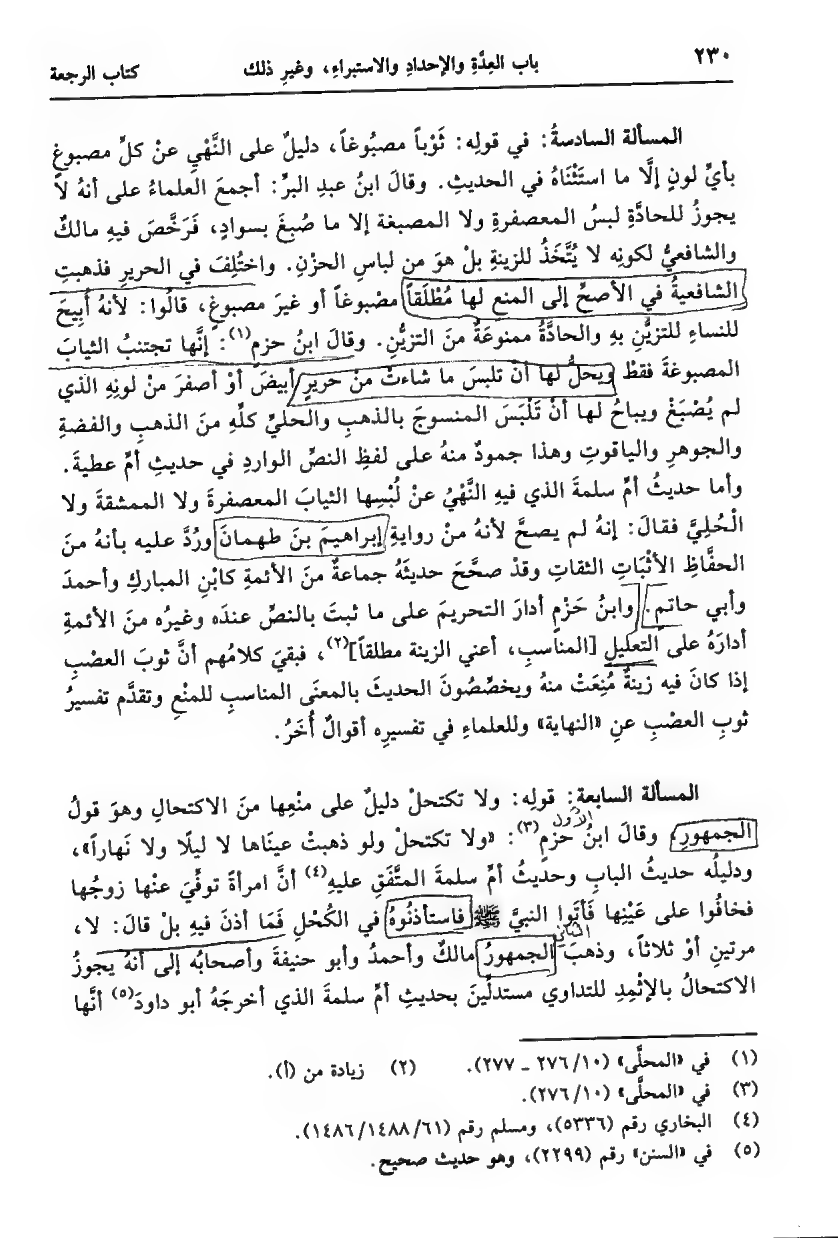 ٢٣٠ باب العِدَّةِ والإحدادِ والاستبراءِ، وغيرِ ذلك كتاب الرجعة
المسألة السادسةُ: في قولِه: ثَوْباً مصبُوغاً، دليلٌ على النَّهْيِ عنْ كلِّ مصبوغٍ
بأيِّ لونٍ إلَّا ما استَثْنَاهُ في الحديثِ. وقالَ ابنُ عبدِ البرِّ: أجمعَ العلماءُ على أنهُ لَا
يجوزُ للحادَّةِ لبسُ المعصفرةِ ولا المصبغة إلا ما صُبغَ بسوادٍ، فَرَخَّصَ فيهِ مالكٌ
والشافعيُّ لكونِه لا يُتَّخَذُ للزينةِ بلْ هوَ من لباسِ الحزْنِ. واختُلِفَ في الحريرِ فذهبتِ
الشافعيةُ في الأصحِّ إلى المنعِ لها مُطْلَقاً مصْبوغاً أو غيرَ مصبوغٍ، قالُوا: لأنهُ أُبِيحَ
للنساءِ للتزيُّنِ بهِ والحادَّةُ ممنوعَةٌ منَ التزيُّنِ. وقالَ ابنُ حزمٍ(١): إنَّها تجتنبُ الثيابَ
المصبوغةَ فقطْ ويحلُّ لها أنْ تلبسَ ما شاءتْ منْ حريرٍ أبيضَ أوْ أصفرَ منْ لونِهِ الذي
لم يُصْبَغْ ويباحُ لها أنْ تَلْبَسَ المنسوجَ بالذهبِ والحليِّ كلِّهِ منَ الذهبِ والفضةِ
والجوهرِ والياقوتِ وهذا جمودٌ منهُ على لفظِ النصِّ الواردِ في حديثِ أمِّ عطيةَ.
وأما حديثُ أمِّ سلمةَ الذي فيهِ النَّهْيُ عنْ لُبْسِها الثيابَ المعصفرةَ ولا الممشقةَ ولا
الْحُلِيَّ فقالَ: إنهُ لم يصحَّ لأنهُ منْ روايةِ إبراهيمَ بنَ طهمانَ ورُدَّ عليه بأنهُ منَ
الحفَّاظِ الأثْباتِ الثقاتِ وقدْ صحَّحَ حديثَهُ جماعةٌ منَ الأئمةِ كابْنِ المباركِ وأحمدَ
وأبي حاتمٍ. وابنُ حَزْمٍ أدارَ التحريمَ على ما ثبتَ بالنصِّ عندَه وغيرُه منَ الأئمةِ
أدارَهُ على التعليلِ [المناسبِ، أعني الزينة مطلقاً](٢)، فبقيَ كلامُهم أنَّ ثوبَ العصْبِ
إذا كانَ فيه زينةٌ مُنِعَتْ منهُ ويخصِّصُونَ الحديثَ بالمعنَى المناسبِ للمنْعِ وتقدَّم تفسيرُ
ثوبِ العصْبِ عنِ «النهاية» وللعلماءِ في تفسيرِه أقوالٌ أُخَرُ.
المسألة السابعةُ: قولِه: ولا تكتحلْ دليلٌ على منْعِها منَ الاكتحالِ وهوَ قولُ
الأول
الجمهورِ، وقالَ ابنُ حزمٍ(٣): «ولا تكتحلْ ولو ذهبتْ عينَاها لا ليلًا ولا نَهاراً»،
ودليلُه حديثُ البابِ وحديثُ أمِّ سلمةَ المتَّفَقِ عليهِ(٤) أنَّ امرأةً توفِّيَ عنْها زوجُها
فخافُوا على عَيْنِها فَأَتَوا النبيَّ ﷺ فاستأذنُوهُ في الكُحْلِ فَمَا أذنَ فيهِ بلْ قالَ: لا،
الثاني
مرتينِ أوْ ثلاثاً، وذهبَ الجمهورُ مالكٌ وأحمدُ وأبو حنيفةَ وأصحابُه إلى أنهُ يجوزُ
الاكتحالُ بالإثْمِدِ للتداوي مستدلِّينَ بحديثِ أمِّ سلمةَ الذي أخرجَهُ أبو داودَ(٥) أنَّها
(١) في «المحلَّى» (٢٧٦/١٠ ـ ٢٧٧). (٢) زيادة من (أ).
(٣) في «المحلَّى» (٢٧٦/١٠).
(٤) البخاري رقم (٥٣٣٦)، ومسلم رقم (١٤٨٦/١٤٨٨/٦١).
(٥) في «السنن» رقم (٢٢٩٩)، وهو حديث صحيح.